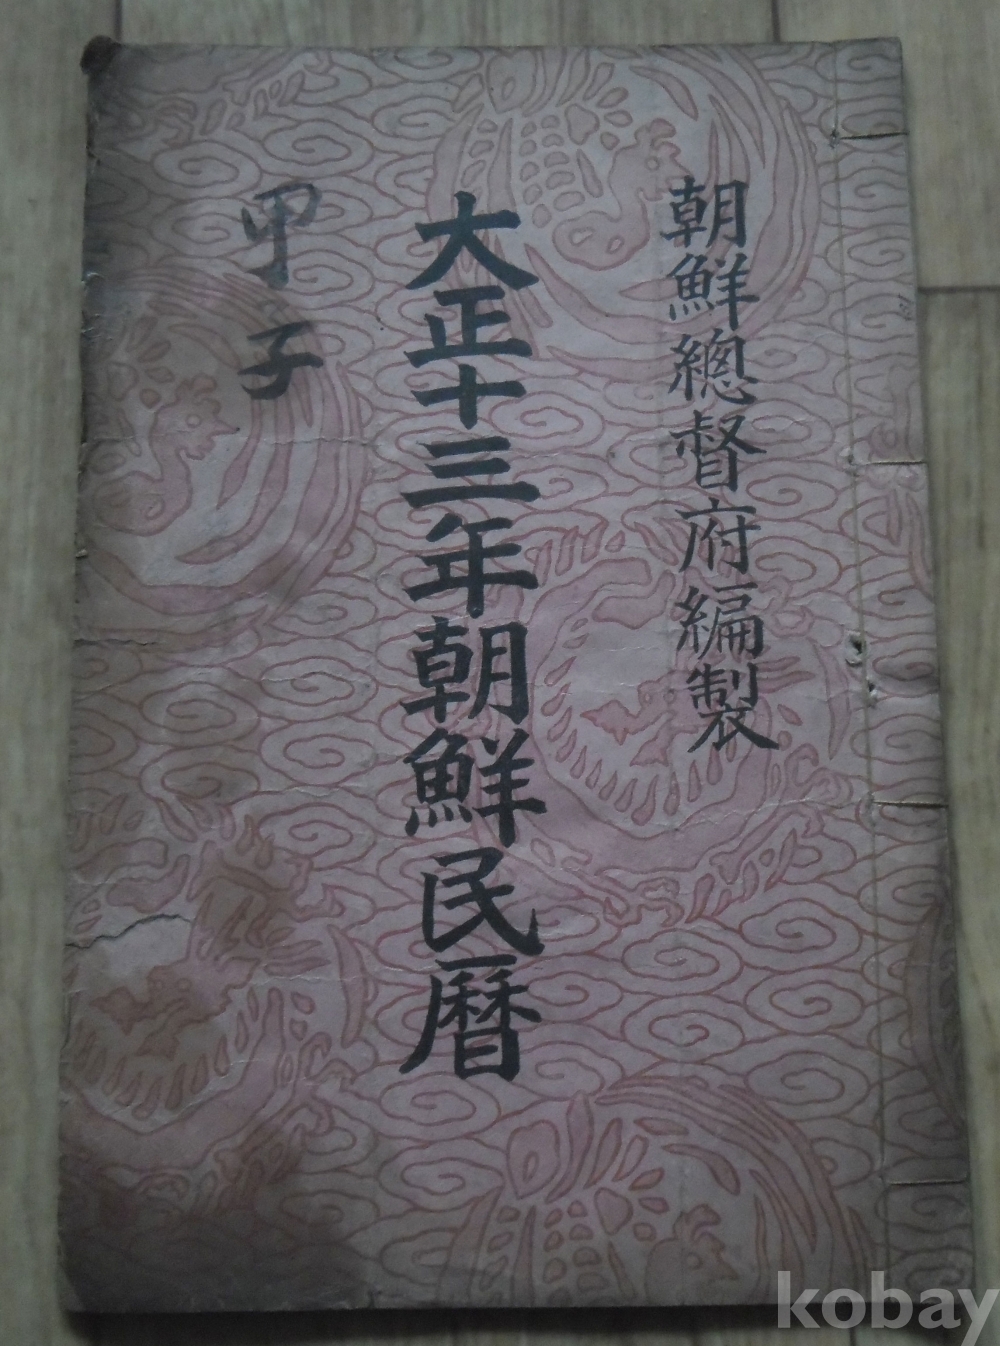 朝鮮總督府編製
大正十三年朝鮮民曆
甲子
kobay